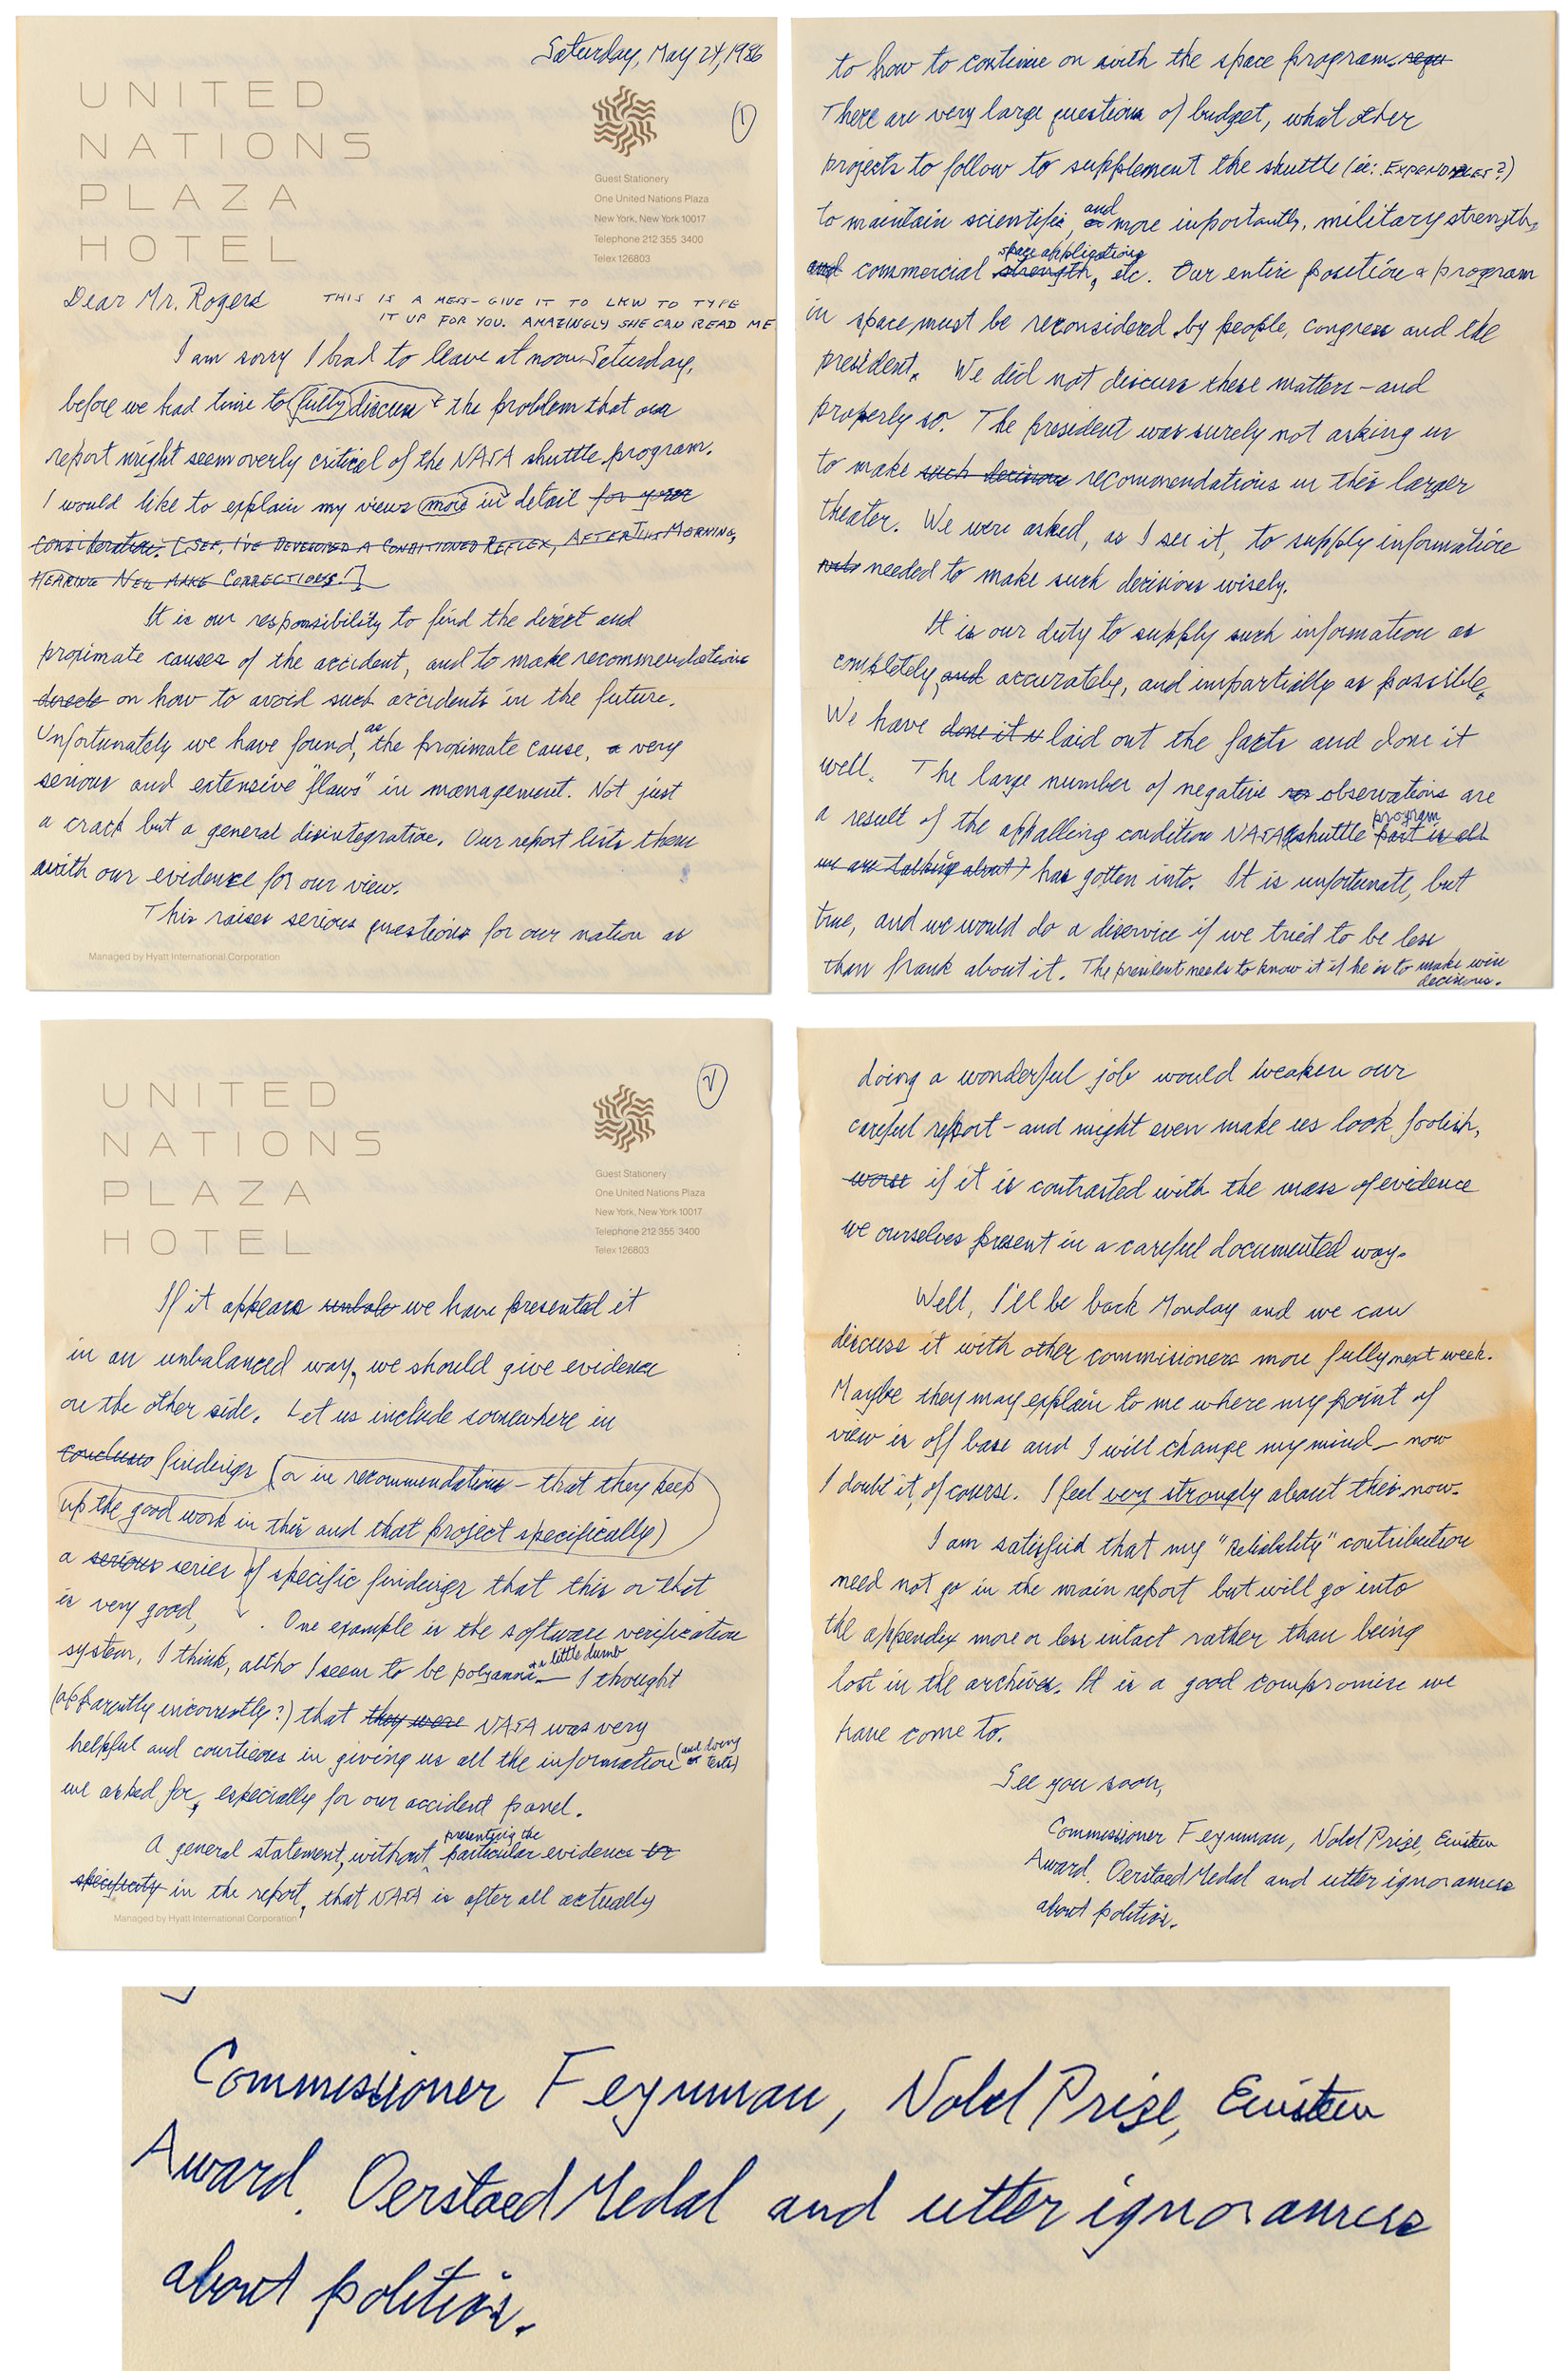 Saturday, May 24, 1986
UNITED
NATIONS
PLAZA
HOTEL
1
Guest Stationery
One United Nations Plaza
New York, New York 10017
Telephone 212 355 3400
Telex 126803
Dear Mr. Rogers
THIS IS A MESS - GIVE IT TO LKW TO TYPE
IT UP FOR YOU. AMAZINGLY SHE CAN READ ME
I am sorry I had to leave at noon Saturday,
before we had time to fully discuss the problem that our
report might seem overly critical of the NASA shuttle program.
I would like to explain my views more in detail for your
consideration. [SEE, I'VE DEVELOPED A CONDITIONED REFLEX, AFTER THIS MORNING,
HEARING NEIL MAKE CORRECTIONS!]
It is our responsibility to find the direct and
proximate causes of the accident, and to make recommendations
directe on how to avoid such accidents in the future.
Unfortunately we have found, as the proximate cause, a very
serious and extensive "flaws" in management. Not just
a crack but a general disintegration. Our report lists them
with our evidence for our view.
This raises serious questions for our nation as
Managed by Hyatt International Corporation
to how to continue on with the space program.
There are very large questions of budget, what other
projects to follow to supplement the shuttle (ie: EXPENDABLES?)
to maintain scientific, and or more importantly, military strength,
and commercial space applications strength, etc. Our entire position & program
in space must be reconsidered by people, congress and the
president. We did not discuss these matters - and
properly so. The president was surely not asking us
to make such decisions recommendations in this larger
theater. We were asked, as I see it, to supply information
needed to make such decisions wisely.
It is our duty to supply such information as
completely, and accurately, and impartially as possible.
We have done it laid out the facts and done it
well. The large number of negative observations are
a result of the appalling condition NASA shuttle program part is all
we are talking about) has gotten into. It is unfortunate, but
true, and we would do a disservice if we tried to be less
than frank about it. The president needs to know it if he is to make wise
decisions.
UNITED
NATIONS
PLAZA
HOTEL
2
Guest Stationery
One United Nations Plaza
New York, New York 10017
Telephone 212 355 3400
Telex 126803
If it appears unbala we have presented it
in an unbalanced way, we should give evidence
on the other side. Let us include somewhere in
findings (or in recommendations - that they keep
up the good work in this and that project specifically)
a serious series of specific findings that this or that
is very good, . One example is the software verification
system, I think, altho I seem to be polyanna a little dumb - I thought
(apparently incorrectly?) that they were NASA was very
helpful and courtieous in giving us all the information (and doing tests)
we asked for, especially for our accident panel.
A general statement, without presenting the particular evidence or
specificity in the report, that NASA is after all actually
Managed by Hyatt International Corporation
doing a wonderful job would weaken our
careful report - and might even make us look foolish,
worse if it is contrasted with the mass of evidence
we ourselves present in a careful documented way.
Well, I'll be back Monday and we can
discuss it with other commisioners more fully next week.
Maybe they may explain to me where my point of
view is off base and I will change my mind - now
I doubt it, of course. I feel very strongly about this now.
I am satisfied that my "reliability" contribution
need not go in the main report but will go into
the appendix more or less intact rather than being
lost in the archives. It is a good compromise we
have come to.
See you soon,
Commissioner Feynman, Nobel Prize, Einstein
Award, Oerstaed Medal and utter ignorances
about politics.
Commissioner Feynman, Nobel Prize, Einstein
Award, Oerstaed Medal and utter ignorances
about politics.